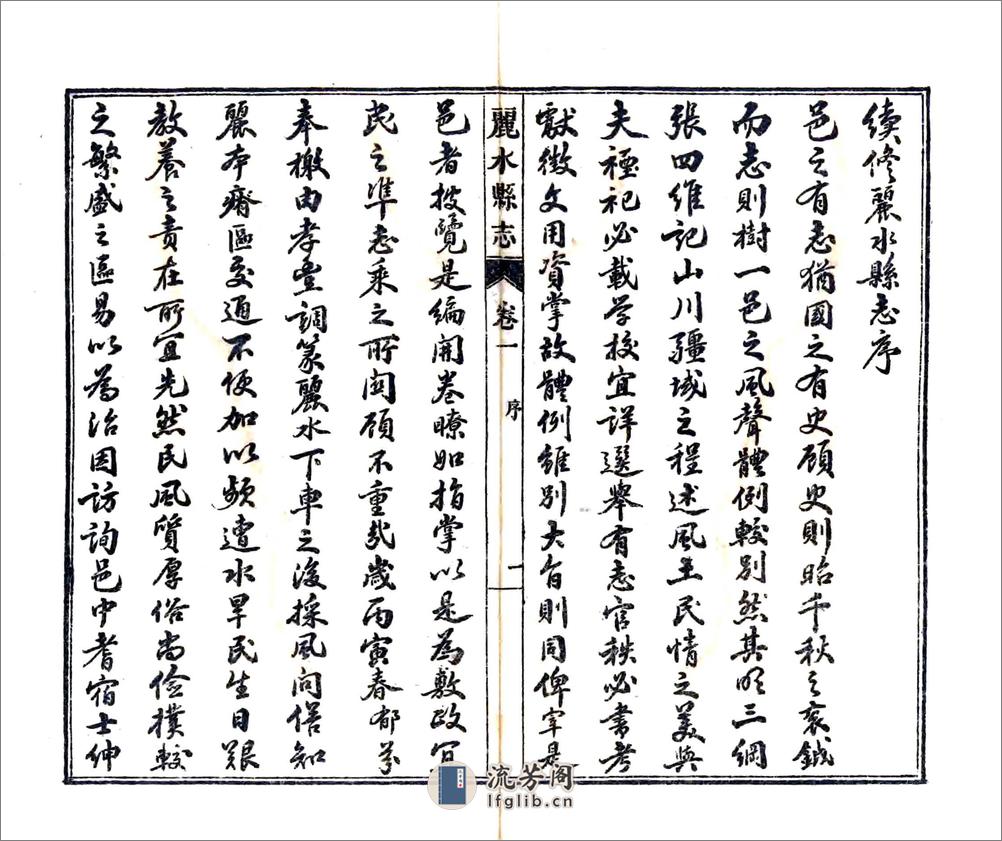 续修麗水縣志序
邑之有志猶國之有史顧史則昭千秋之袞鉞
而志則樹一邑之風聲體例較別然其明三綱
張四維記山川疆域之程述風土民情之美與
夫禋祀必載学校宜详選舉有志官秩必書考
獻徵文用資掌故體例雖別大旨則同俾宰是
麗水縣志
卷一
序
一
邑者披覽是編開卷瞭如指掌以是為敷政宜
民之準志乘之所関顧不重哉歲丙寅春郁芬
奉檄由孝豊調篆麗水下車之後採風问俗知
麗本瘠區交通不便加以頻遭水旱民生日艱
教養之責在所宜先然民風質厚俗尚儉樸較
之繁盛之區易以為治因訪詢邑中耆宿士紳
流芳阁
lfglib.cn